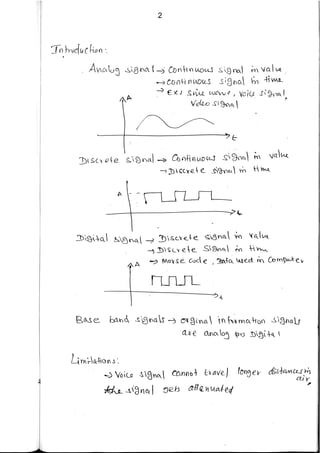 2
Introduction :
Analog signal → Continuous signal in value
→ Continuous signal in time
→ Ex: Sine wave, Voice signal,
Video signal
A
t
Discrete signal → Continuous signal in value
→ Discrete signal in time
A
t
Digital signal → Discrete signal in value
→ Discrete signal in time
→ Morse code, Data used in Computer
A
t
Base band signals → original information signals
are analog or Digital
Limitations:
→ Voice signal cannot travel longer distances in
air
the signal gets attenuated